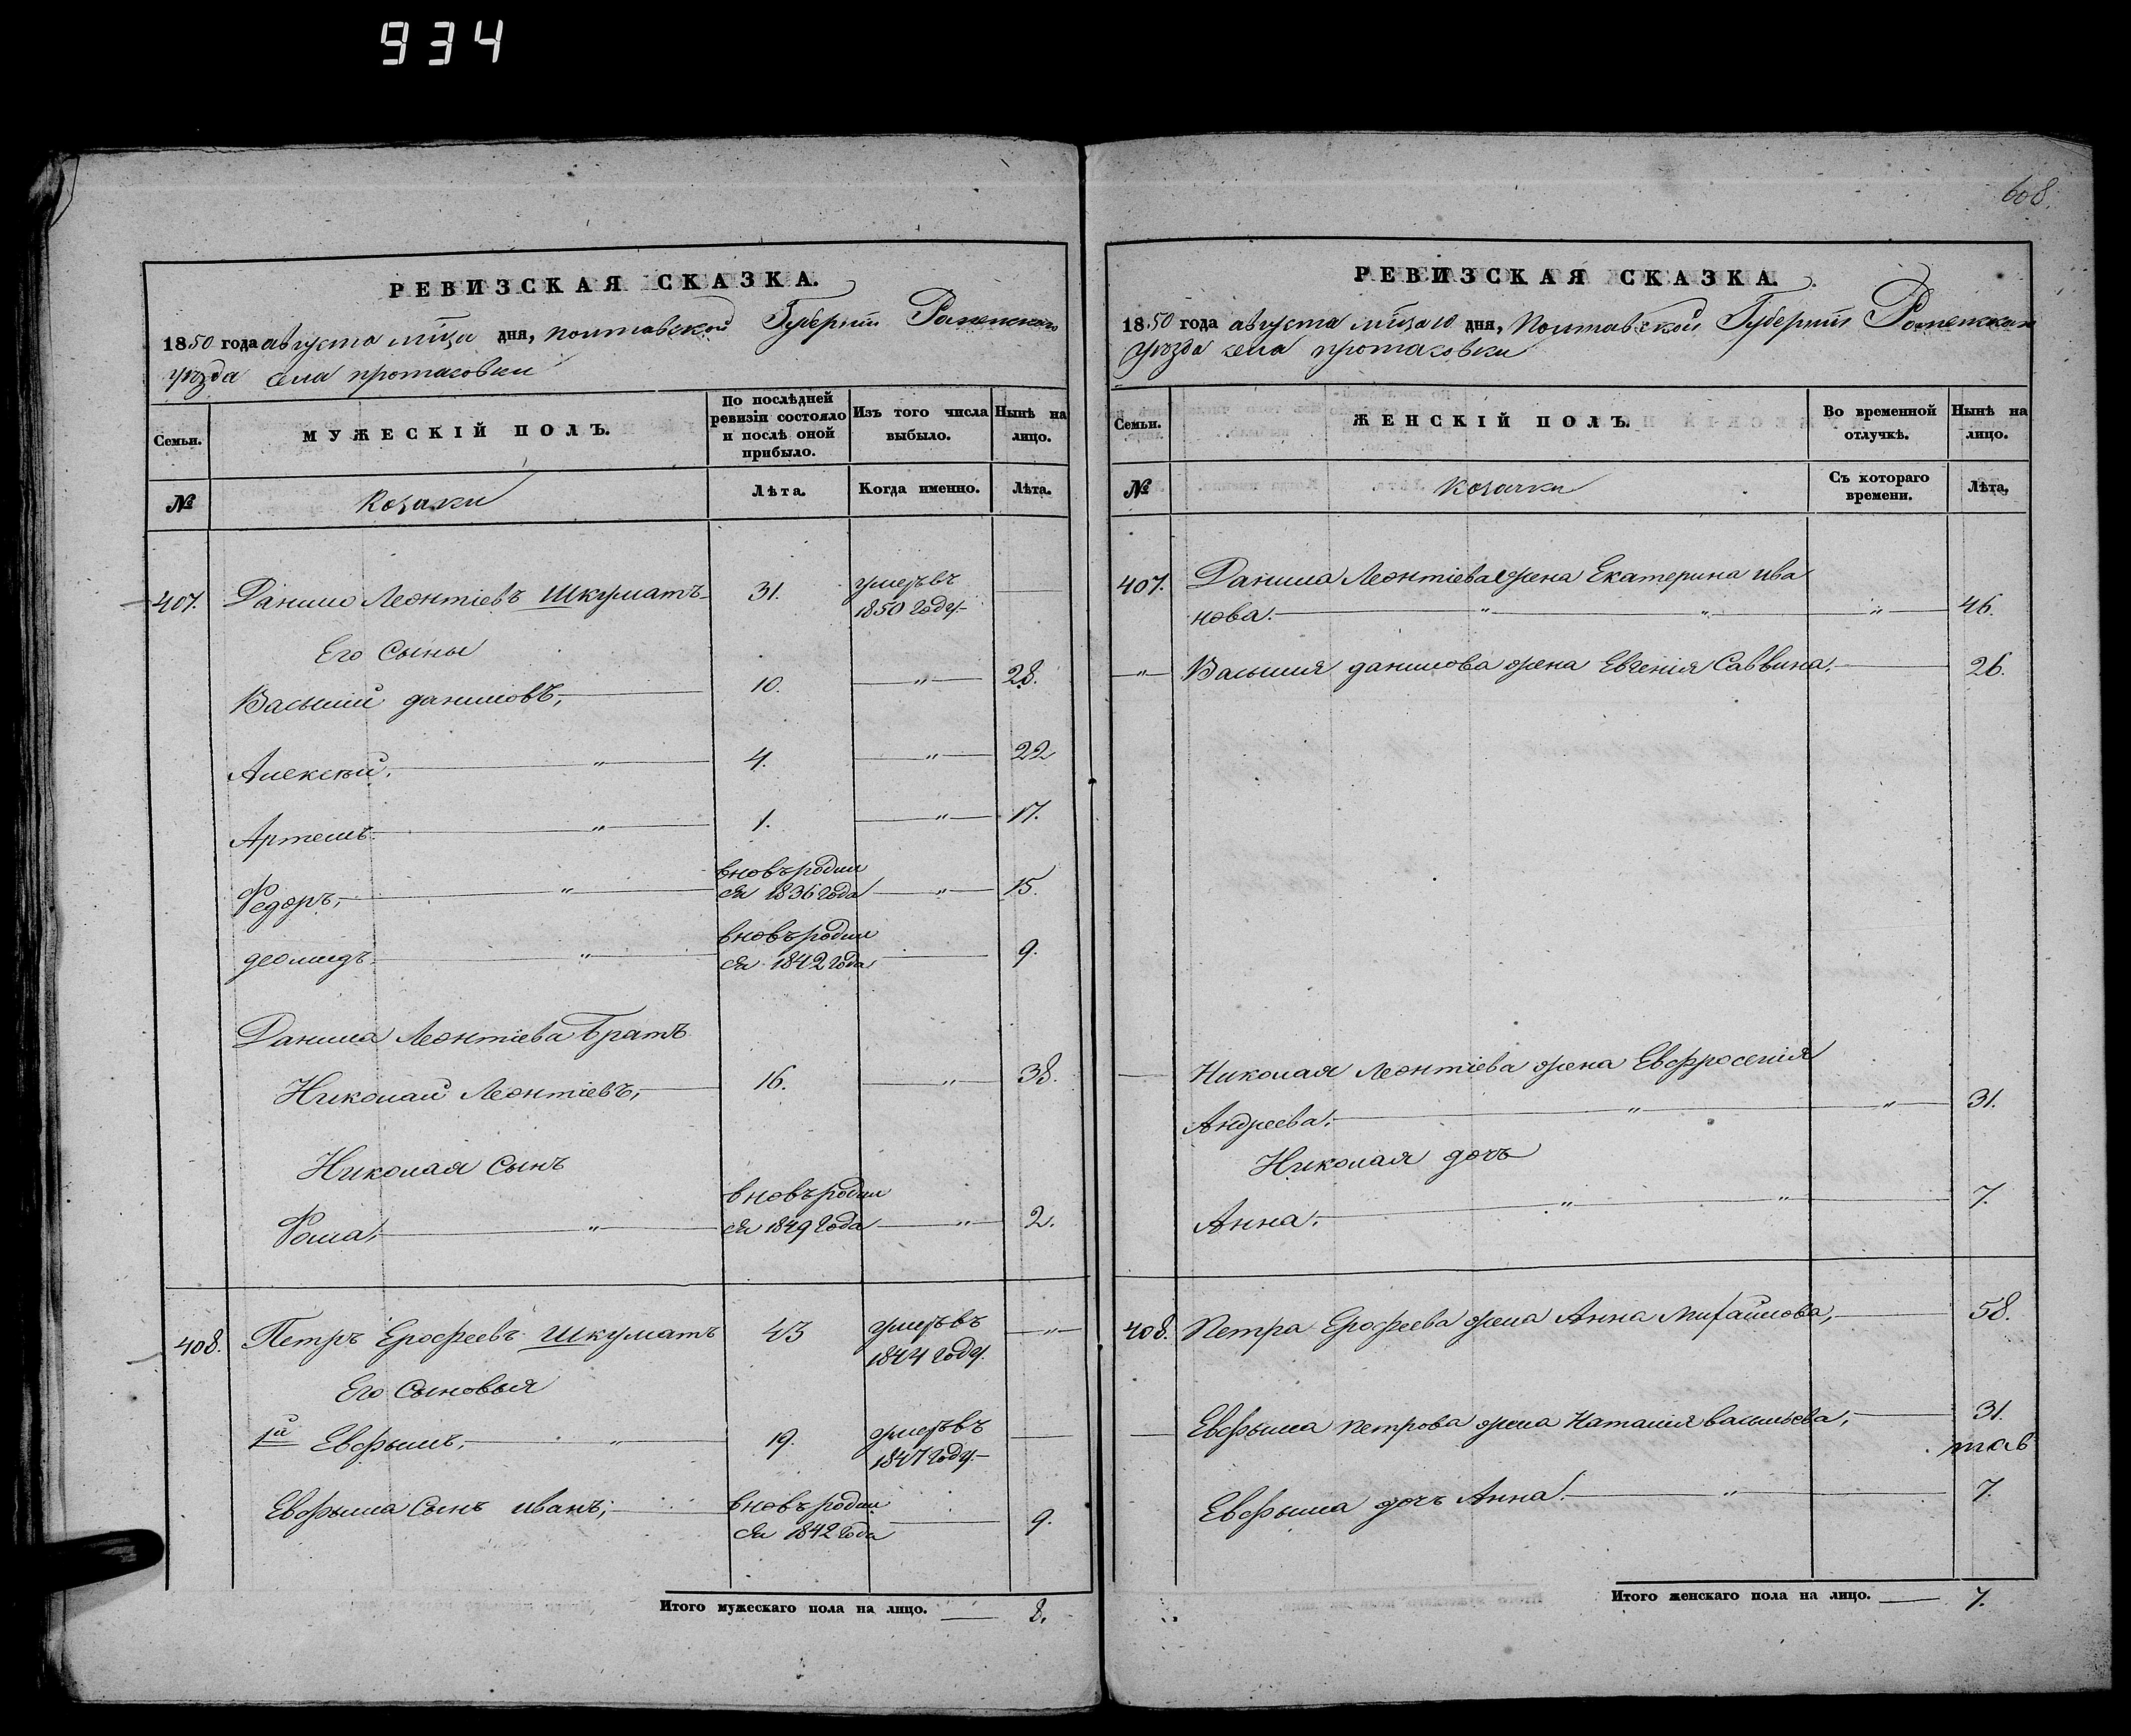 934
РЕВИЗСКАЯ СКАЗКА.
1850 года августа мѣца дня, полтавской Губерніи Роменского
уѣзда села протасовки
Семьи.
МУЖЕСКІЙ ПОЛЪ.
По послѣдней
ревизіи состояло
и послѣ оной
прибыло.
Изъ того числа
выбыло.
Нынѣ на
лицо.
№
Козаки
Лѣта.
Когда именно.
Лѣта.
407. Данило Леонтіевъ Шкуматъ 31. умеръ въ
1850 году
Его Сыны
Василій даниловъ, 10. " 28.
Алексѣй, " 4. " 22
Артемъ " 1. " 17.
вновь родил
Федоръ, " ся 1836 года " 15.
вновь родил
деомидъ " ся 1842 года 9.
Данила Леонтіева братъ
Николай Леонтіевъ, 16. " 38.
Николая Сынъ
вновь родил
Фома, " ся 1849 года " 2.
408. Петръ Ерофеевъ Шкуматъ 43 умеръ въ "
1844 году.
Его Сыновья
1й Евфимъ, " 19. умеръ въ
1847 году
Евфима Сынъ иванъ, вновь родил
ся 1842 года 9.
Итого мужескаго пола на лицо. 8.
608.
РЕВИЗСКАЯ СКАЗКА.
1850 года августа мѣца 10 дня, Полтавской Губерніи Роменскаго
Уѣзда села протасовки
Семьи.
ЖЕНСКІЙ ПОЛЪ.
Во временной
отлучкѣ.
Нынѣ на
лицо.
№
Козачки
Съ котораго
времени.
Лѣта,
407. Данила Леонтіева жена Екатерина ива
нова. " " " 46.
" Василия данилова жена Евгенія Саввина. 26.
Николая Леонтіева жена Евфросенія
Андреева. " " 31.
Николая дочь
Анна. " " 7.
408. Петра Ерофеева жена Анна Михайлова, 58.
Евфима петрова жена Наталия васильева, 31.
Евфима дочь Анна. " 7
Итого женскаго пола на лицо. 7.